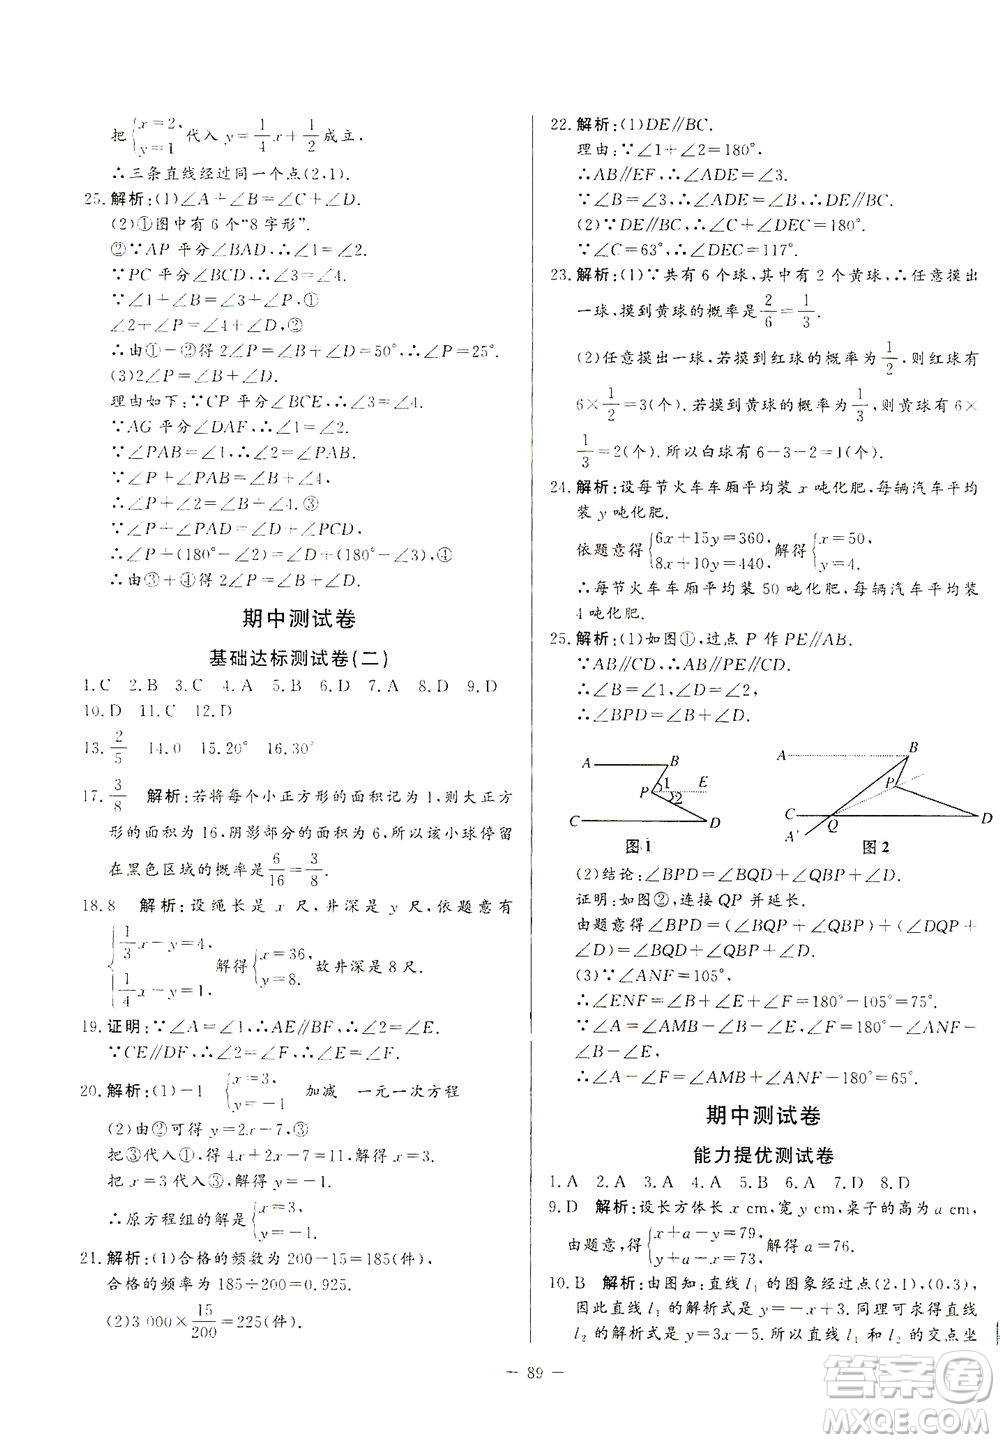 把{x=2, y=1 代入 y=1/4x+1/2成立.
∴三条直线经过同一个点(2,1).
25.解析:(1)∠A+∠B=∠C+∠D.
(2)①图中有6个“8字形”.
②∵AP平分∠BAD,∴∠1=∠2.
∵PC平分∠BCD,∴∠3=∠4.
∵∠1+∠B=∠3+∠P,①
∠2+∠P=∠4+∠D,②
∴由①-②得2∠P=∠B+∠D=50°,∴∠P=25°.
(3)2∠P=∠B+∠D.
理由如下:∵CP平分∠BCE,∴∠3=∠4.
∵AG平分∠DAF,∴∠1=∠2.
∵∠PAB=∠1,∴∠2=∠PAB.
∵∠P+∠PAB=∠B+∠4,③
∵∠P+∠PAD=∠D+∠PCD,
∴∠P+(180°-∠2)=∠D+(180°-∠3),④
∴由③+④得2∠P=∠B+∠D.
期中测试卷
基础达标测试卷(二)
1.C 2.B 3.C 4.A 5.B 6.D 7.A 8.D 9.D
10.D 11.C 12.D
13.2/5 14.0 15.20° 16.30°
17.3/8 解析:若将每个小正方形的面积记为1,则大正方
形的面积为16,阴影部分的面积为6,所以该小球停留
在黑色区域的概率是6/16=3/8.
18.8 解析:设绳长是x尺,井深是y尺,依题意有
{1/3x-y=4, 1/4x-y=1, 解得{x=36, y=8. 故井深是8尺.
19.证明:∵∠A=∠1,∴AE∥BF,∴∠2=∠E.
∵CE∥DF,∴∠2=∠F,∴∠E=∠F.
20.解析:(1)-1 {x=3, y=-1 加减 一元一次方程
(2)由②可得y=2x-7,③
把③代入①,得4x+2x-7=11,解得x=3.
把x=3代入③,得y=-1.
∴原方程组的解是{x=3, y=-1.
21.解析:(1)合格的频数为200-15=185(件),
合格的频率为185÷200=0.925.
(2)3 000×15/200=225(件).
22.解析:(1)DE∥BC.
理由:∵∠1+∠2=180°,
∴AB∥EF,∴∠ADE=∠3.
∵∠B=∠3,∴∠ADE=∠B,∴DE∥BC.
(2)∵DE∥BC,∴∠C+∠DEC=180°.
∵∠C=63°,∴∠DEC=117°.
23.解析:(1)∵共有6个球,其中有2个黄球,∴任意摸出
一球,摸到黄球的概率是2/6=1/3.
(2)任意摸出一球,若摸到红球的概率为1/2,则红球有
6×1/2=3(个).若摸到黄球的概率为1/3,则黄球有6×
1/3=2(个).所以白球有6-3-2=1(个).
24.解析:设每节火车车厢平均装x吨化肥,每辆汽车平均
装y吨化肥.
依题意得{6x+15y=360, 8x+10y=440, 解得{x=50, y=4.
∴每节火车车厢平均装50吨化肥,每辆汽车平均装
4吨化肥.
25.解析:(1)如图①,过点P作PE∥AB.
∵AB∥CD,∴AB∥PE∥CD.
∴∠B=∠1,∠D=∠2,
∴∠BPD=∠B+∠D.
A B P 1 E 2 C D
图1
A B P C Q D A′
图2
(2)结论:∠BPD=∠BQD+∠B+∠D.
证明:如图②,连接QP并延长.
由题意得∠BPD=(∠BQP+∠B)+(∠DQP+
∠D)=∠BQD+∠B+∠D.
(3)∵∠ANF=105°,
∴∠ENF=∠B+∠E+∠F=180°-105°=75°.
∵∠A=∠AMB-∠B-∠E,∠F=180°-∠ANF-
∠B-∠E,
∴∠A-∠F=∠AMB+∠ANF-180°=65°.
期中测试卷
能力提优测试卷
1.A 2.A 3.A 4.A 5.B 6.D 7.D 8.D
9.D 解析:设长方体长x cm,宽y cm,桌子的高为a cm,
由题意,得{x+a-y=79, y+a-x=73, 解得a=76.
10.B 解析:由图知:直线l₁的图象经过点(2,1),(0,3),
因此直线l₁的解析式是y=-x+3.同理可求得直线
l₂的解析式是y=3x-5.所以直线l₁和l₂的交点坐
— 89 —
答案圈
MXQE.COM